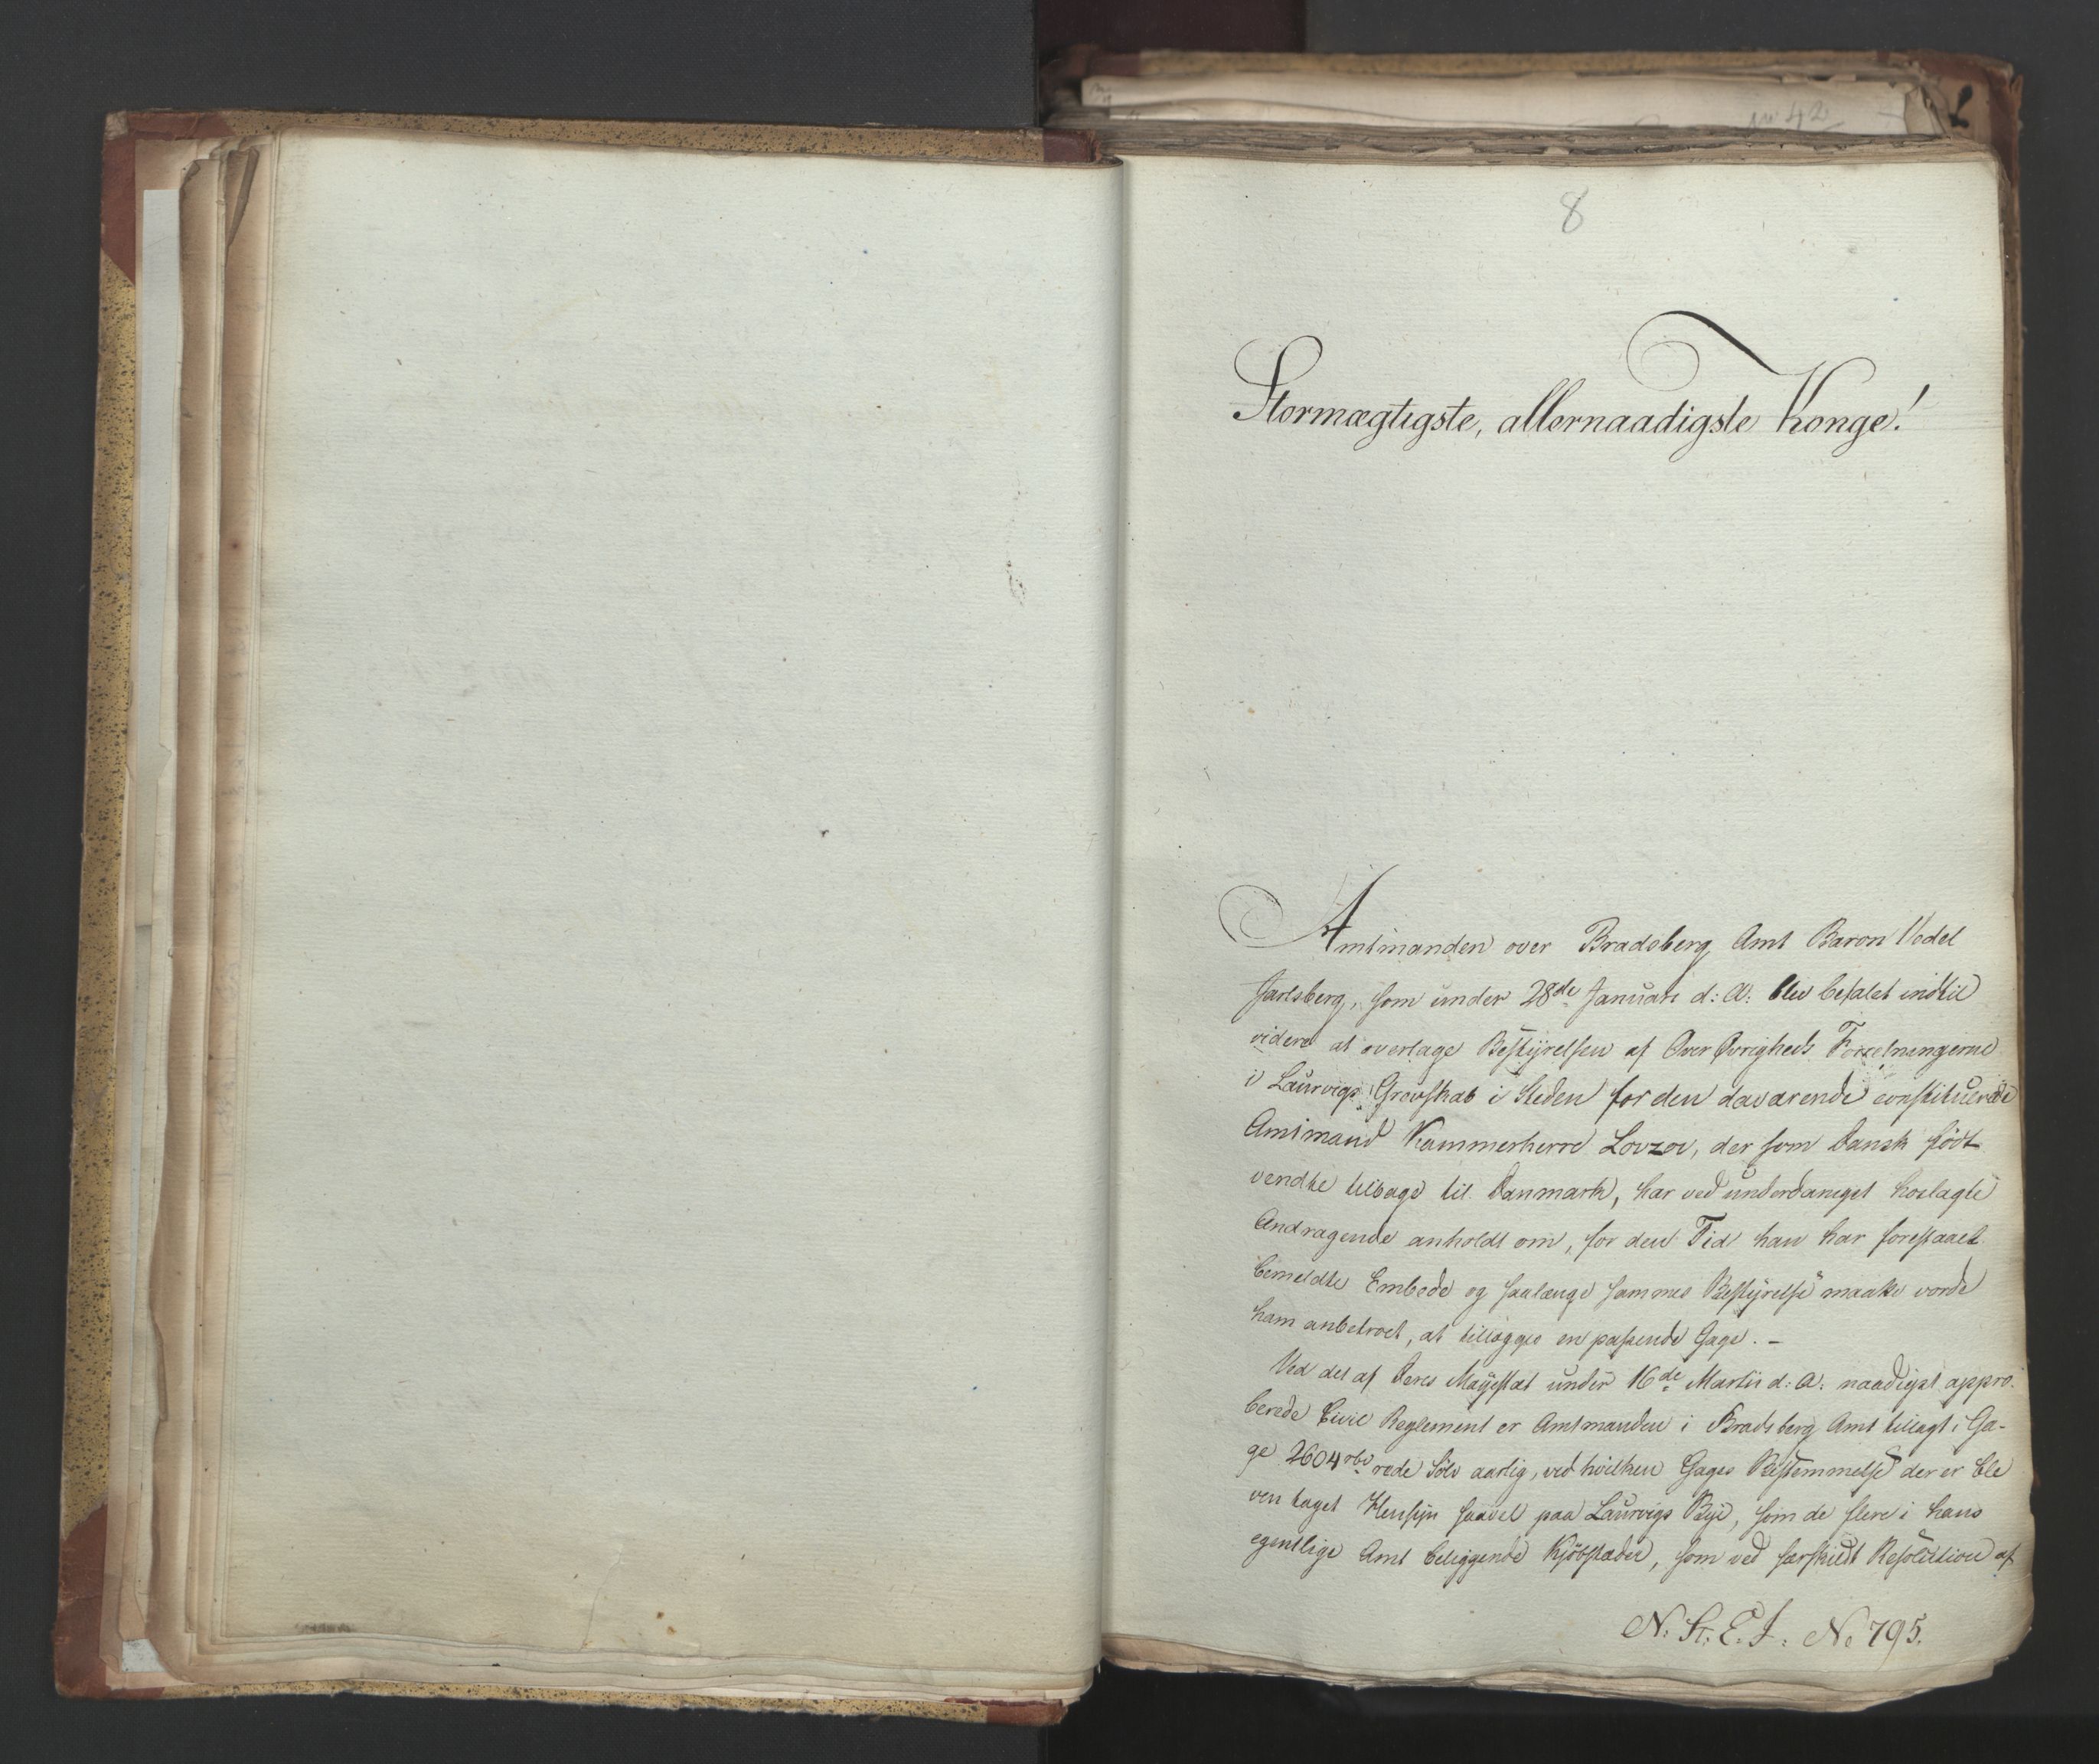 No 42
8
Stormægtigste, allernaadigste Konge!
Amtmanden over Bradsberg Amt Baron Wedel
Jarlsberg, som under 28de Januari d: A: blev befalet indtil
videre at overtage Bestÿrelsen af Over Øvrigheds Forretningerne
i Laurvigs Grevskab i Steden for den daværende constituerede
Amtmand Kammerherre Lovzov, der som Dansk födt
vendte tilbage til Danmark, har ved underdanigst hoslagte
Andragende anholdt om, for den Tid han har forestaaet
bemeldte Embede og saalænge sammes Bestÿrelse maatte vorde
ham anbetroet, at tillægges en passende Gage. –
Ved det af Deres Majestæt under 16de Martii d: A: naadigst appro-
berede Civil Reglement er Amtmanden i Bradsberg Amt tillagt i Ga-
ge 2604 rbd rede Sölv aarlig, ved hvilken Gages Bestemmelse der er ble
ven taget Hensÿn saavel paa Laurvigs Bÿe, som de flere i hans
egentlige Amt beliggende Kjöbstæder, som ved særskildt Resolution af
N: St: E. J: No 795.